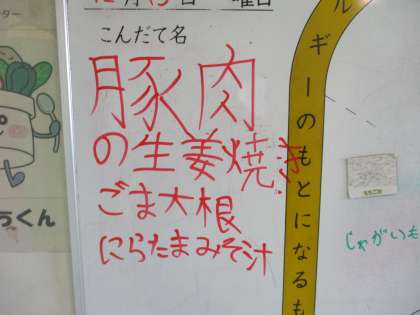 曜日
こんだて名
豚肉
の生姜焼き
ごま大根
にらたまみそ汁
ギーのもとになるも
じゃがいも
うくん